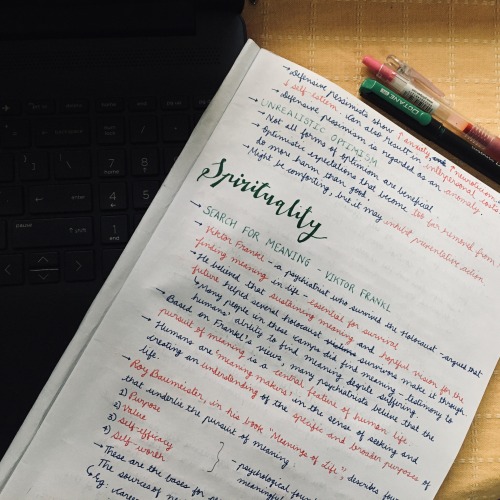 → Defensive pessimists show ↑ anxiety, ↑ neuroticism,
↓ self-esteem. Can also result in interpersonal costs
→ Defensive pessimism is regarded as an anomaly.
→ UNREALISTIC OPTIMISM
→ Not all forms of optimism are beneficial
→ Optimistic expectations that become too far removed from
do more harm than good.
→ Might be comforting, but it may inhibit preventative action
Spirituality
→ SEARCH FOR MEANING - VIKTOR FRANKL
→ Viktor Frankl - a psychiatrist who survived the Holocaust - argued that
finding meaning in life - essential for survival
→ He believed that sustaining meaning and hopeful vision for the
future helped several holocaust survivors make it through.
↳ Many people in these camps did find meaning - testimony to
humans' ability to find meaning despite suffering.
→ Based on Frankl's views, many psychiatrists believe that the
pursuit of meaning is a central feature of human life
→ Humans are 'meaning makers' in the sense of seeking and
creating an understanding of the specific and broader purposes of
life.
→ Roy Baumeister, in his book "Meanings of Life", describe four
that underlie the pursuit of meaning:
1) Purpose
2) Value
3) self-efficacy
4) self-worth
- psychological
meaningful
→ These are the bases for
The sources of
Eg:
OCTANE
pause
shift
7
8
4
5
1
end
0